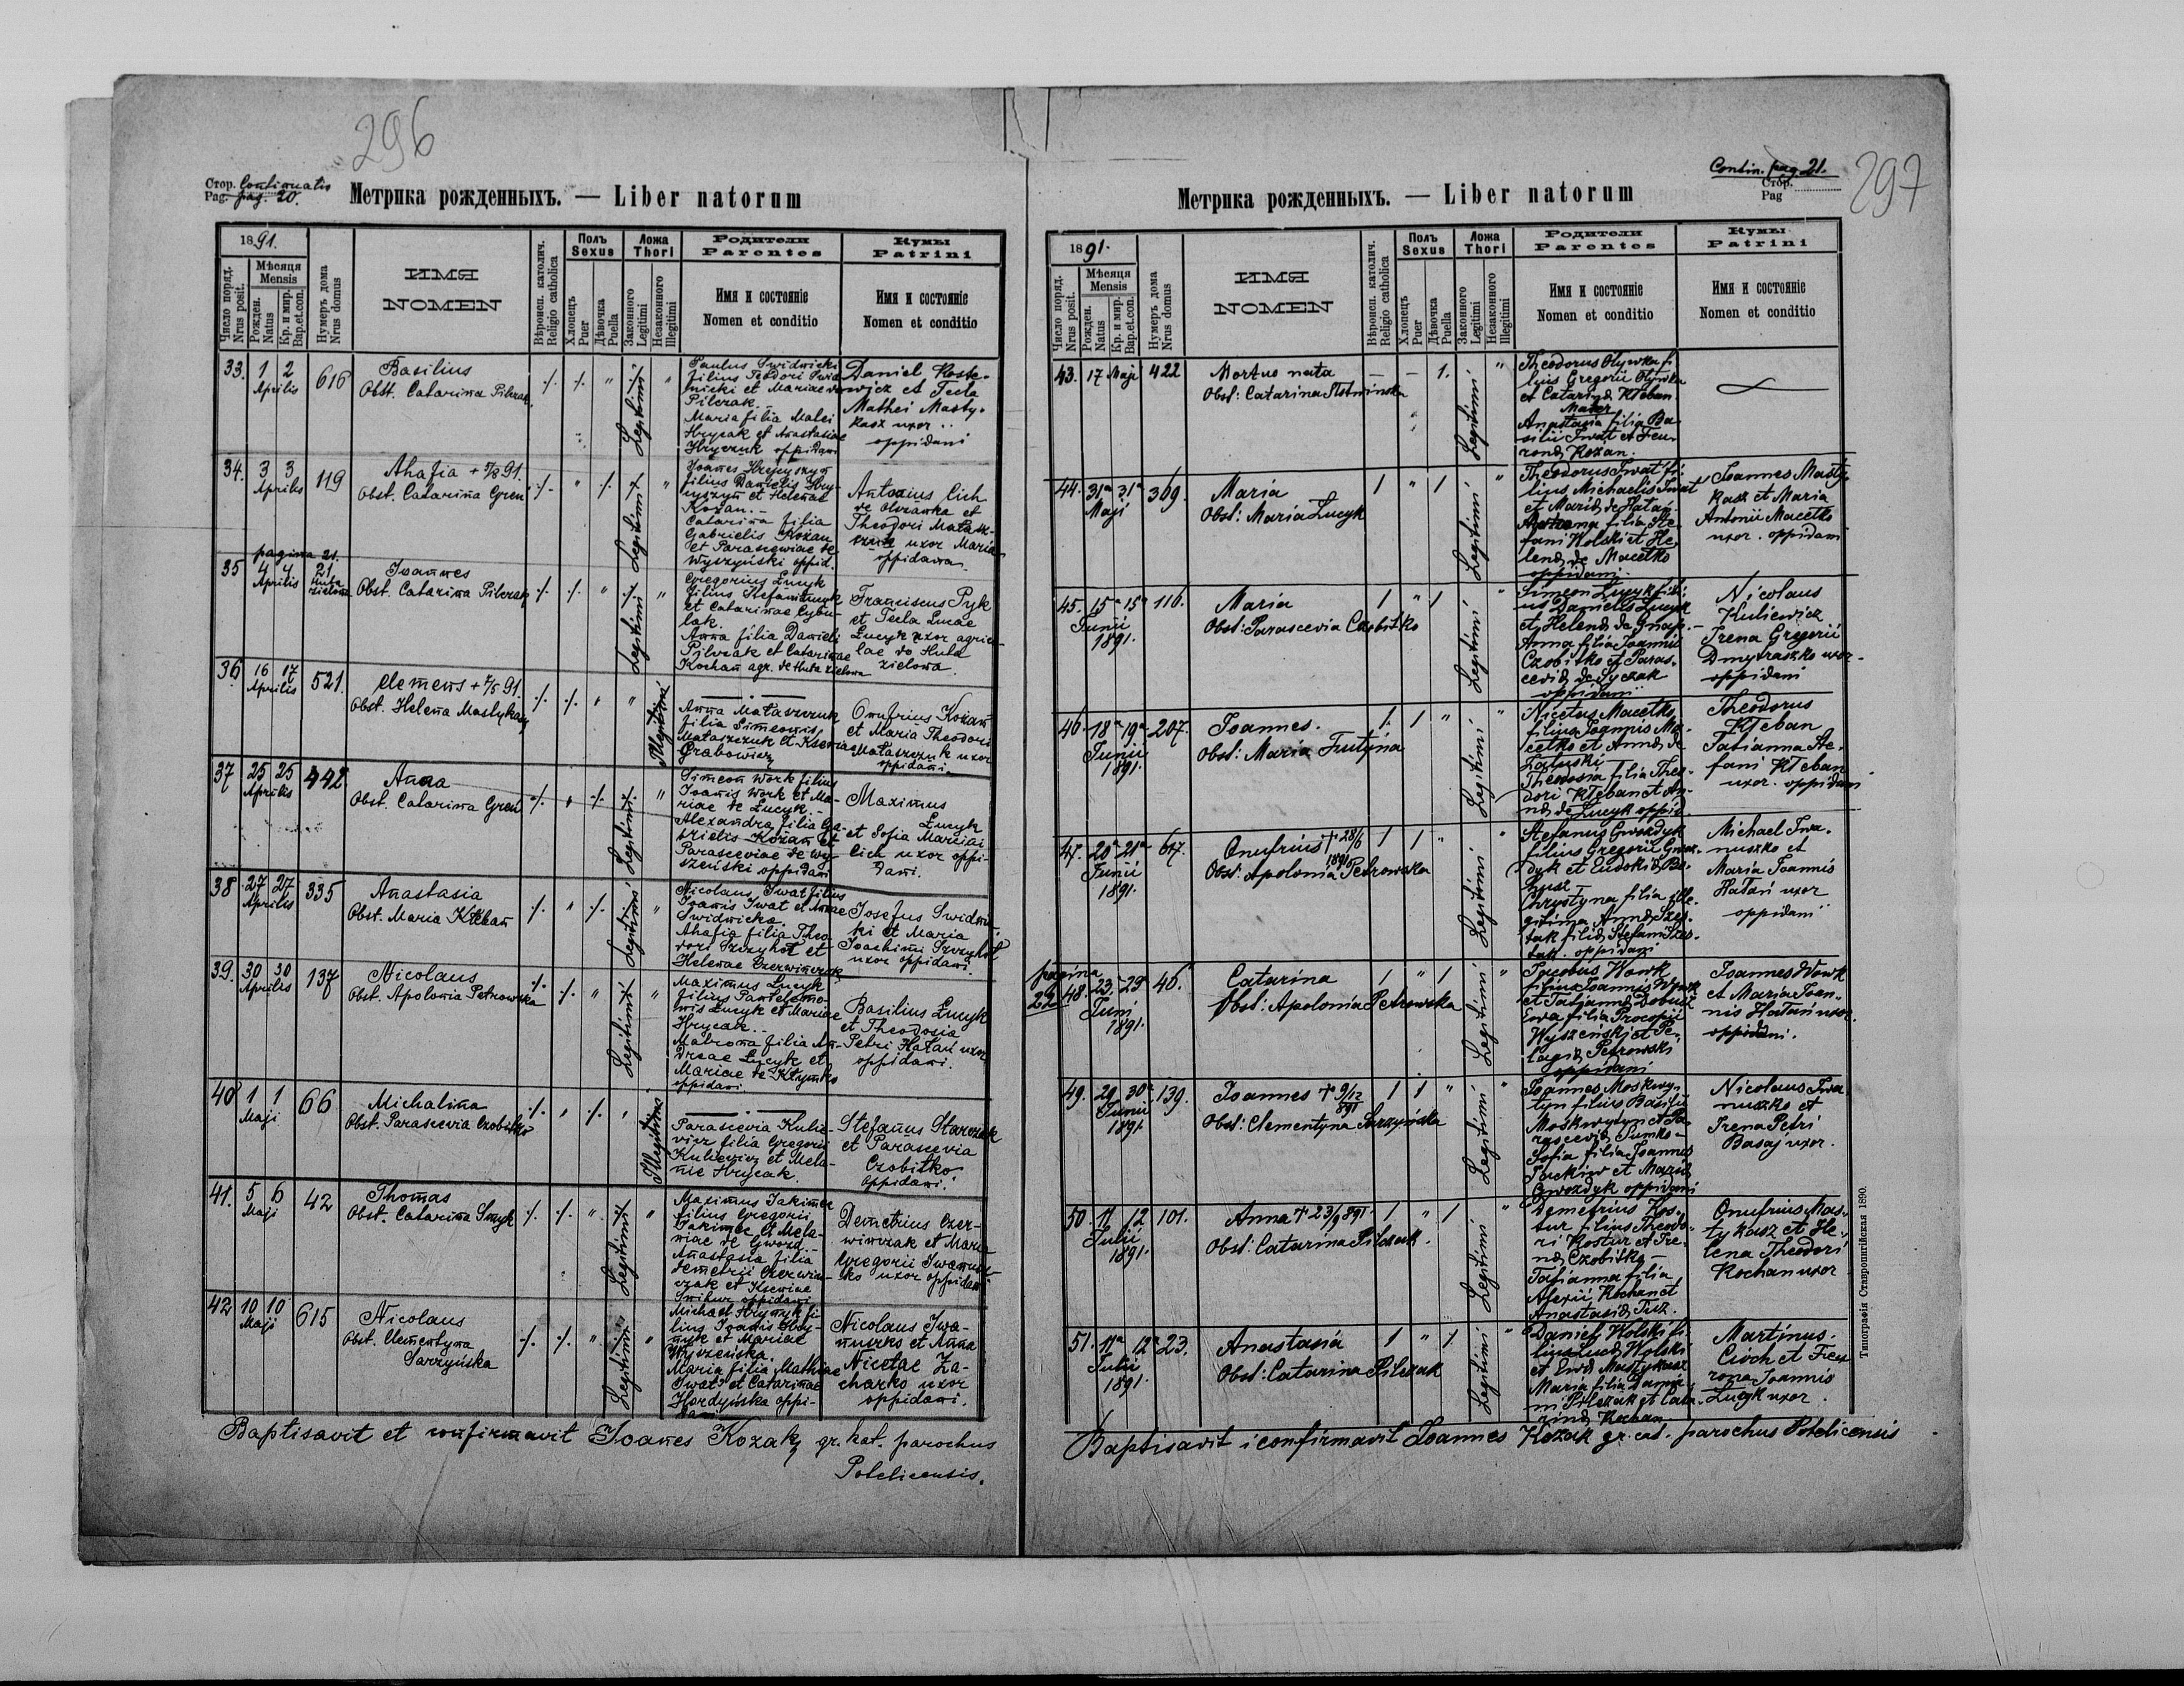 296
Стор. Continuatio
Pag. pag. 20.
Метрика рожденныхъ. — Liber natorum
1891.
Число поряд.
Nrus posit.
Мѣсяця
Mensis
Рожден.
Natus
Кр. и мир.
Bap.et.con.
Нумеръ дома
Nrus domus
ИМЯ
NOMEN
Вѣроисп. католич.
Religio catholica
Полъ
Sexus
Хлопецъ
Puer
Дѣвочка
Puella
Ложа
Thori
Законного
Legitimi
Незаконного
Illegitimi
Родители
Parentes
Имя и состоянiе
Nomen et conditio
Кумы
Patrini
Имя и состоянiе
Nomen et conditio
33. 1 2 Aprilis 616
Basilius
Obst. Catarina Pilczak
Legitimi
Paulus Swidnicki
filius Teodori Swid
nicki et Mariae de
Pilczak.
Maria filia Matei
Hrycak et Anastasiae
Hryczuk oppidani
Daniel Koste-
wicz et Tecla
Mathei Masty-
kasz uxor
oppidani
34. 3 3 Aprilis 119
Ahafia + 91.
Obst. Catarina Gren
Legitimi
Joanes Hrycyszyn
filius Danielis Hry-
cyszyn et Helenae
Kożan.-
Catarina filia
Gabrielis Kożan
et Parascewiae de
Wyszyński oppid.
Antonius Cich
de Olszanka et
Theodori Matasz-
czuk uxor Maria
oppidana.
pagina 21.
35 4 4 Aprilis 21. Huta zielona
Joannes
Obst. Catarina Pilczak
Legitimi
Gregorius Łucyk
filius Stefani Łucyk
et Catarinae Cybu-
lak.
Anna filia Danieli
Pilczak et Catarinae
Kochan agr. de Huta zielona
Franciscus Pyk
et Tecla Lucae
Łucyk uxor agrico-
lae de Huta
zielona.
36 16 17 Aprilis 521.
Clemens + 7/5 91.
Obst. Helena Mastykasz
Illegitimi
Anna Mataszczuk
filia Simeonis
Mataszczuk et Kseniae
Grabowicz
Onufrius Kożan
et Maria Theodori
Mataszczuk uxor
oppidani.
37 25 25 Aprilis 442
Anna
Obst. Catarina Gren
Legitimi
Simeon Work filius
Joanis Work et Ma-
riae de Łucyk.-
Alexandra filia Ga-
brielis Kożan et
Parasceviae de Wy-
szeński oppidani
Maximus
Łucyk
et Sofia Marciai
Cich uxor oppi-
dani.
38 27 27 Aprilis 335
Anastasia
Obst. Maria Kłeban
Legitimi
Nicolaus Iwat filius
Joanis Iwat et Annae
Swidnicka.
Ahafia filia Theo
dori Szczyhoł et
Helenae Czerwinczak
Josefus Swidnic-
ki et Maria
Joachimi Szczyhoł
uxor oppidani.
39. 30 30 Aprilis 137
Nicolaus
Obst. Apolonia Petrowska
Legitimi
Maximus Łucyk
filius Panteleimo-
nis Łucyk et Mariae
Hrycak.
Matrona filia An-
dreae Łucyk et
Mariae de Kłymko
oppidani
Basilius Łucyk
et Theodosia
Petri Hałań uxor
oppidani.
40 1 1 Maji 66
Michalina
Obst. Parascevia Czobitko
Illegitimi
Parascevia Kulie-
wicz filia Gregorii
Kuliewicz et Mela-
nie Hrycak.
Stefanus Starczak
et Parascevia
Czobitko
oppidani.
41. 5 6 Maji 42
Thomas
Obst. Catarina Smyk
Legitimi
Maximus Jakimec
filius Gregorii
Jakimec et Mela-
niae de Gwozd.-
Anastasia filia
Demetrii Czerwin-
czak et Kseniae
Snihur oppidani
Demetrius Czer-
winczak et Maria
Gregorii Iwanusz-
ko uxor oppidani
42 10 10 Maji 615
Nicolaus
Obst. Clementyna
Sarzyńska
Legitimi
Michael Hrynyk fi-
lius Joanis Hry-
nyk et Mariae
Wyszeńska.
Maria filia Mathiae
Iwat et Catarinae
Hordyńska oppi-
dani.
Nicolaus Iwa-
nuszko et Anna
Nicetae Za-
charko uxor
oppidani.
Baptisavit et confirmavit Joanes Kozak, gr. kat. parochus
Potelicensis.
Contin. pag. 21.
Стор.
Pag
297
Метрика рожденныхъ. — Liber natorum
1891.
Число поряд.
Nrus posit.
Мѣсяця
Mensis
Рожден.
Natus
Кр. и мир.
Bap.et.con.
Нумеръ дома
Nrus domus
ИМЯ
NOMEN
Вѣроисп. католич.
Religio catholica
Полъ
Sexus
Хлопецъ
Puer
Дѣвочка
Puella
Ложа
Thori
Законного
Legitimi
Незаконного
Illegitimi
Родители
Parentes
Имя и состоянiе
Nomen et conditio
Кумы
Patrini
Имя и состоянiе
Nomen et conditio
43. 17 Maji 422
Mortuo nata
Obst: Catarina Słotwinska
Legitimi
Theodorus Olywka fi
lius Gregorii Olywka
et Catarinae Kłeban.
Mater
Anastasia filia Ba-
silii Iwat et Feu-
ronae Kożan.
44. 31a 31a Maji 369.
Maria
Obst: Maria Łucyk
Legitimi
Theodorus Iwat fi-
lius Michaelis Iwat
et Mariae de Hałań
filia Ste-
fani Wolski et He-
lenae de Macetko
oppidani.
Joannes Masty-
kasz et Maria
Antonii Macetko
uxor. oppidani
45. 15a 15a Junii 1891. 116.
Maria
Obst: Parascevia Czobitko
Legitimi
Simeon Łucyk fili-
us Danielis Łucyk
et Helenae de Gnap.-
Anna filia Joannis
Czobitko et Paras-
ceviae de Syczak
oppidani
Nicolaus
Kuliewicz
Irena Gregorii
Dmytraszko uxor.
oppidani
46. 18a 19a Junii 1891. 207.
Joannes.
Obst: Maria Trutyna
Legitimi
Nicetas Macetko
filius Joannis Ma-
cetko et Annae de
Załuski
Theodosia filia Theo-
dori Kłeban et An-
nae de Łucyk oppid.
Theodorus
Kłeban
Tatianna Ste-
fani Kłeban
uxor. oppidani
47. 20a 21a Junii 1891. 617.
Onufrius † 28/6 1891
Obst: Apolonia Petrowska
Legitimi
Stefanus Gwozdyk
filius Gregorii Gwoz-
dyk et Eudokiae Ba-
husz
Chrystyna filia ille-
gitima Annae Szes-
tak filiae Stefani Szes-
tak. oppidani
Michael Iwa-
nuszko et
Maria Joannis
Hałań uxor
oppidani
pagina 22
48. 23. 29 Juni 1891. 46.
Catarina
Obst: Apolonia Petrowska
Legitimi
Jacobus Wowk
filius Joannis Wowk
et Tatjannae Dobusz
Ewa filia Procopii
Wyszeński et Pe-
lagiae Petrowski
oppidani
Joannes Wowk
et Maria Joan-
nis Hałań uxor.
oppidani.
49. 29 30a Junii 1891 139.
Joannes † 9/12 891
Obst: Clementyna Sarzyńska
Legitimi
Joannes Moskwy-
tyn filius Basilii
Moskwytyn et Pa-
rasceviae Sumko-
Sofia filia Joannis
Jackiw et Mariae
Gwozdyk oppidani
Nicolaus Iwa-
nuszko et
Irena Petri
Basaj uxor.
50. 11 12 Julii 1891. 101.
Anna † 23/9 891
Obst: Catarina Pilczak.
Legitimi
Demetrius Kos-
tur filius Theodo-
ri Kostur et Ire-
nae Czobitko-
Tatianna filia
Alexii Kochan et
Anastasiae Tuz.
Onufrius Mas-
tykasz et He-
lena Theodori
Kochan uxor
51. 11a 12a Julii 1891. 23.
Anastasia
Obst: Catarina Pilczak
Legitimi
Daniel Wolski fi-
lius Lucae Wolski
et Evae Mastykasz
Maria filia Damia-
ni Pilczak et Cata-
rinae Kochan
Martinus
Cioch et Feu-
rona Joannis
Łucyk uxor.
Baptisavit i confirmavit Joannes Kozak gr. cat. parochus Potelicensis
Типографія Ставропигійская 1890.